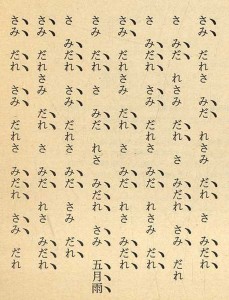 さみ だれさ みだ れさみ だれ さ みだれ さみ だれ
さ みだ れさみ だれ さ みだれ さみ だれ
さ みだれ さみ だれさみ だれ さ みだ れさ みだれ
さみだれ さみ だれさみ だれ さ みだ れさ みだれ
さみ だれ さみ だれ さ みだれ さみ 五月雨
さ みだれ さみだれ さ みだ れ さみ だれ
さみ だれさみ だれ さ みだ れさ みだれ
さみ だれ さみ だれさ みだれ さみ だれ